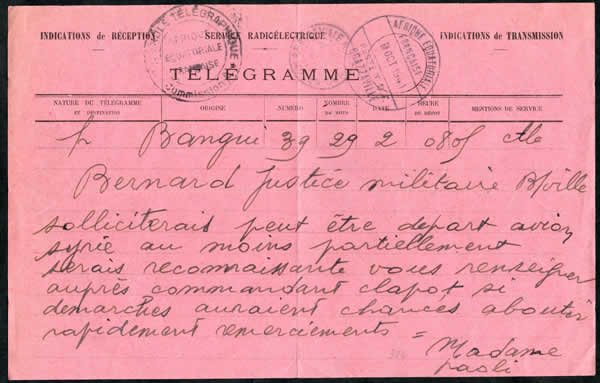 INDICATIONS de RÉCEPTION SERVICE RADIOÉLECTRIQUE INDICATIONS de TRANSMISSION
TÉLÉGRAPHIQUE
AFRIQUE
ÉQUATORIALE
FRANÇAISE
AFRIQUE EQUATORIALE
FRANÇAISE
OCT
TÉLÉGRAMME
NATURE DU TÉLÉGRAMME
ET DESTINATION
ORIGINE
NUMÉRO
NOMBRE
DE MOTS
DATE
HEURE
DE DÉPOT
MENTIONS DE SERVICE
p Bangui 39 29 2 0805
Bernard Justice militaire B/ville
solliciterais peut être depart avion
syrie au moins partiellement
serais reconnaissante vous renseigner
auprès commandant clapot si
demarches auraient chances aboutir
rapidement remerciements =
Madame
paoli